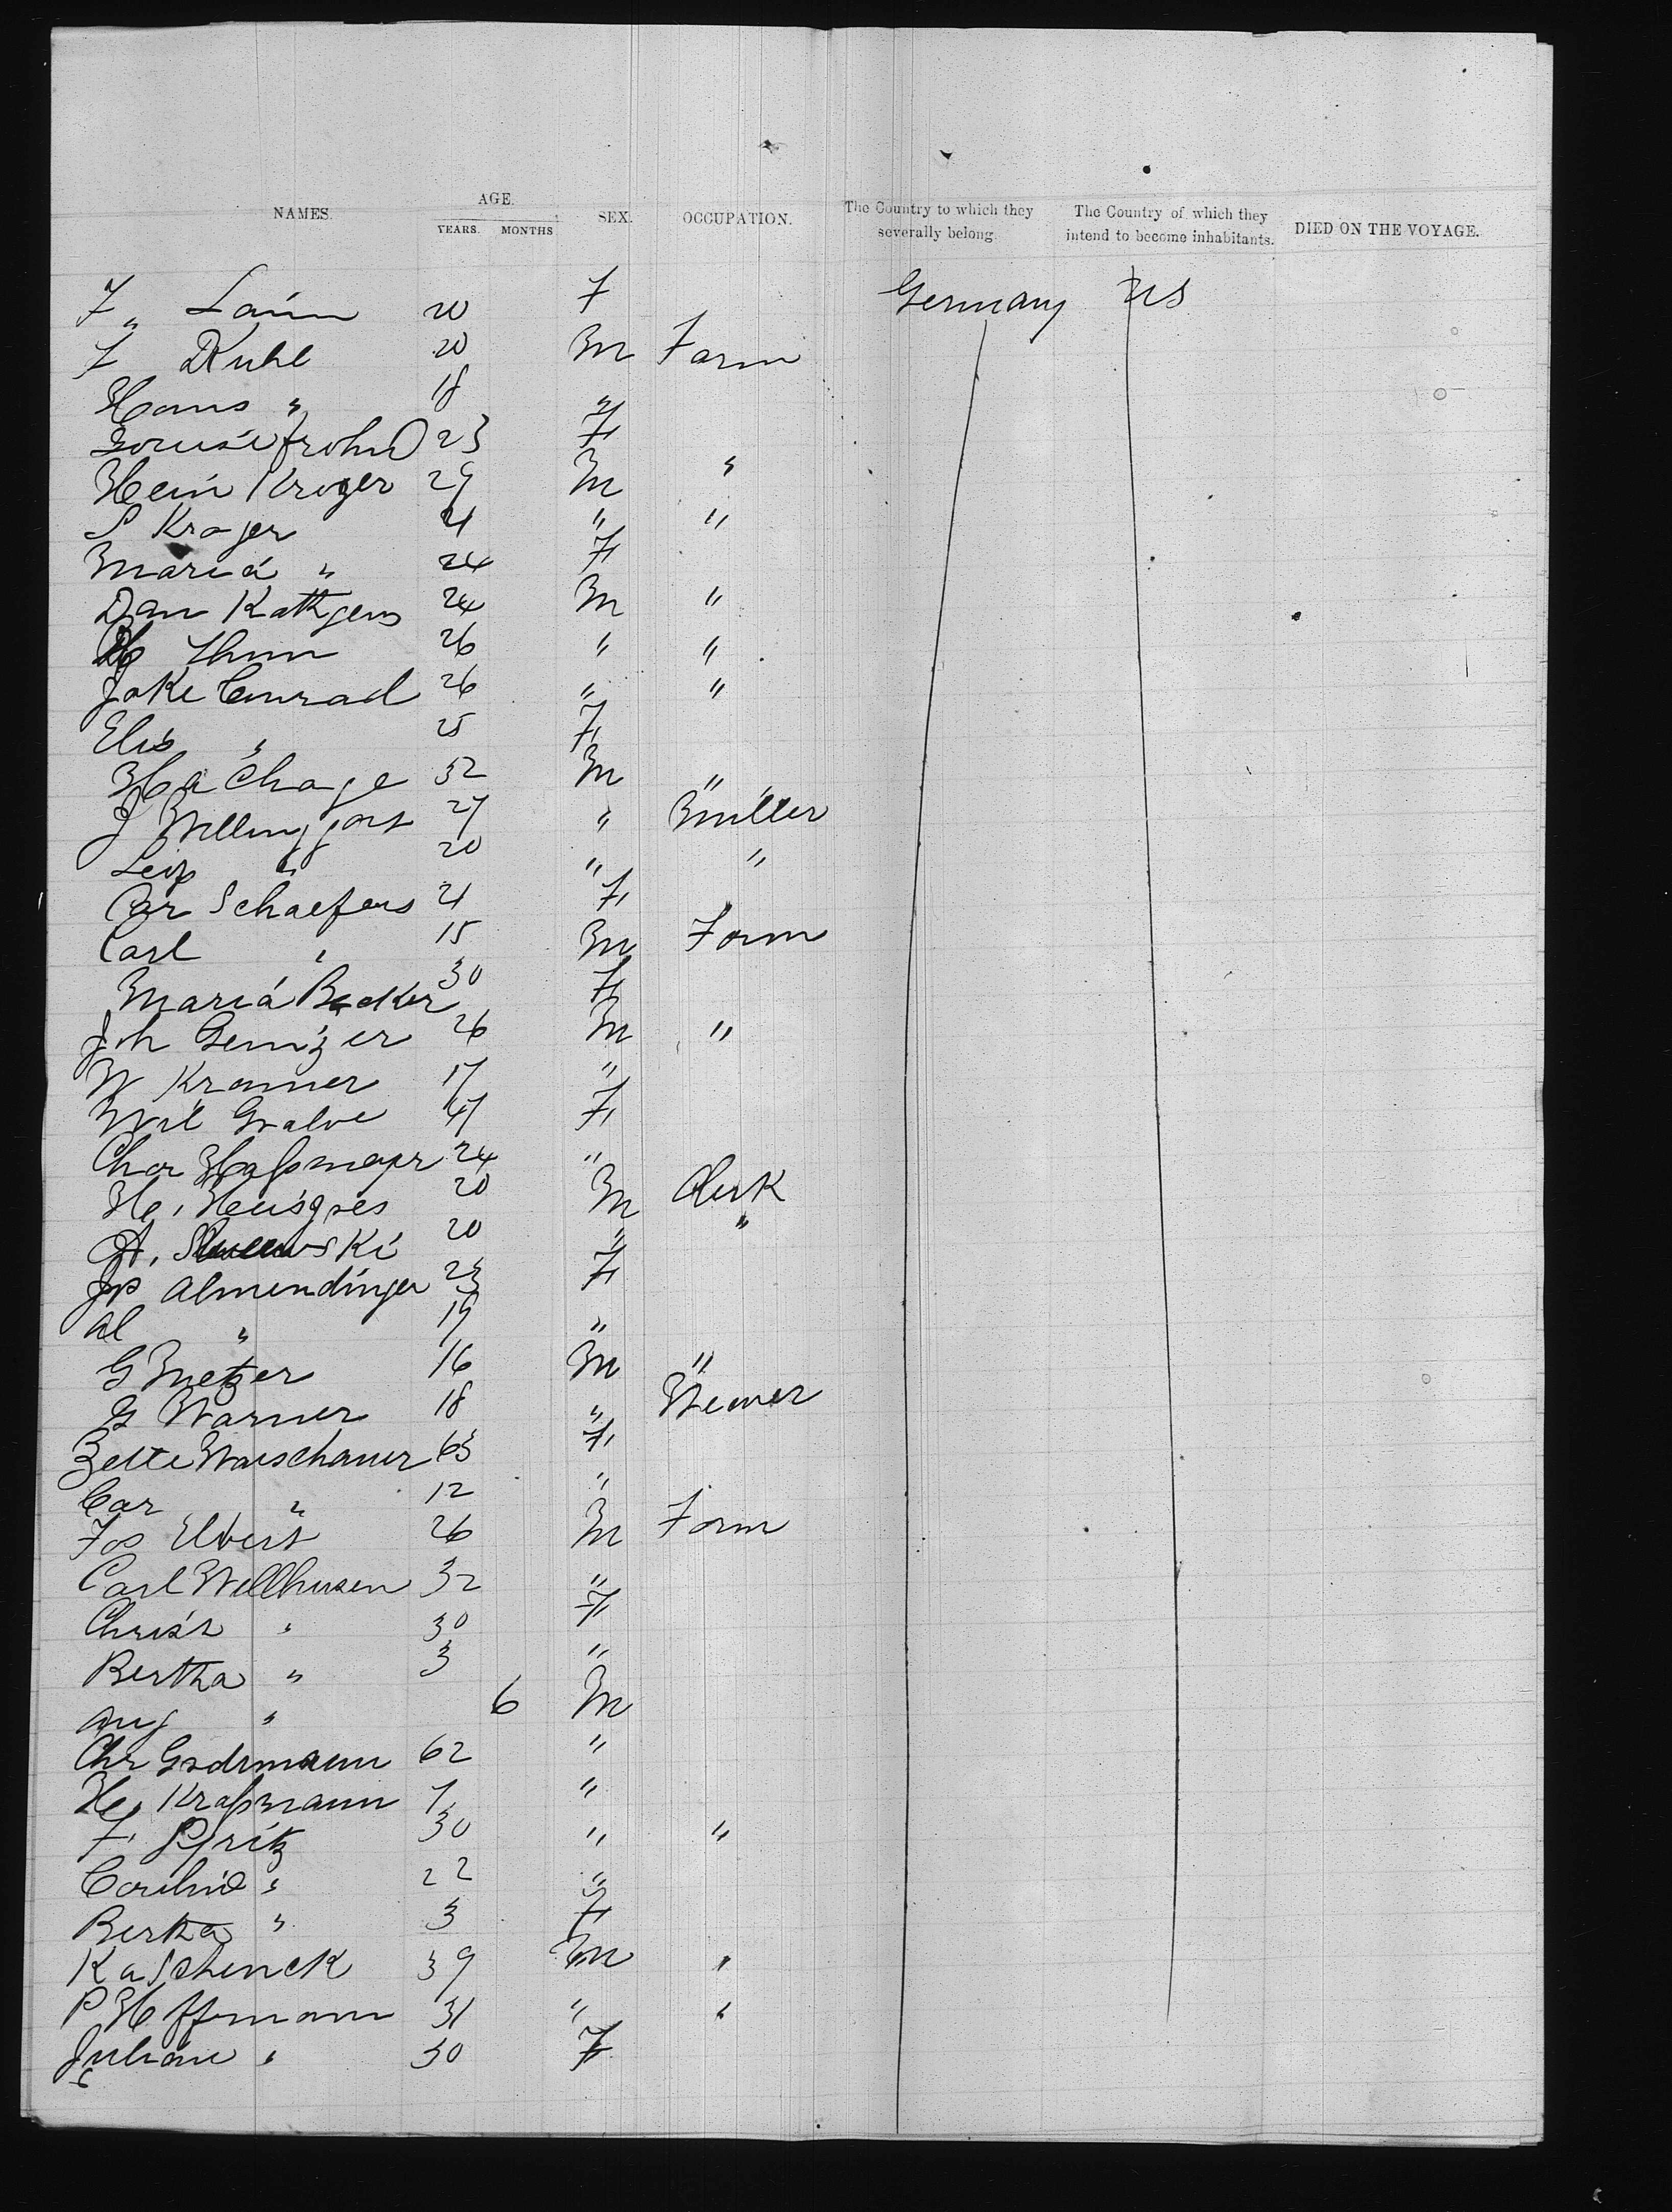 NAMES. AGE. SEX. OCCUPATION. The Country to which they severally belong. The Country of which they intend to become inhabitants. DIED ON THE VOYAGE.
YEARS. MONTHS
F „ 20 F Germany US
F Kuhl 20 M Farm
Hans " 18 "
Louise Frohn 23 F
Hein Kroger 29 M "
S Kroger 21 " "
Maria " 24 F
Dan Kathjens 24 M "
Thun 26 " "
Joke Conrad 26 " "
Elis " 25 F
32 M "
J 27 " Miller
Leop " 20 " "
Car Schaefers 21 F
Carl " 15 M Farm
Maria Becker 30 F
Joh 26 M "
W Kramer 17 "
Wil 47 F
24 "
He, 20 M Clerk
A, 20 " "
Jos Almendinger 23 F
Al " 19 "
G Metzer 16 M "
G Warner 18 " Weaver
Zette Warschauer 63 F
Car " 12 "
Jos Elbert 26 M Farm
Carl Wellhusen 32 "
Christ " 30 F
Bertha " 3 "
Aug " 6 M
Chr 62 "
He, Kraßmann 7 "
F, 30 " "
" 22 "
Berta " 3 F
Ka Schenck 39 M "
P Hoffmann 31 " "
Juliane " 30 F